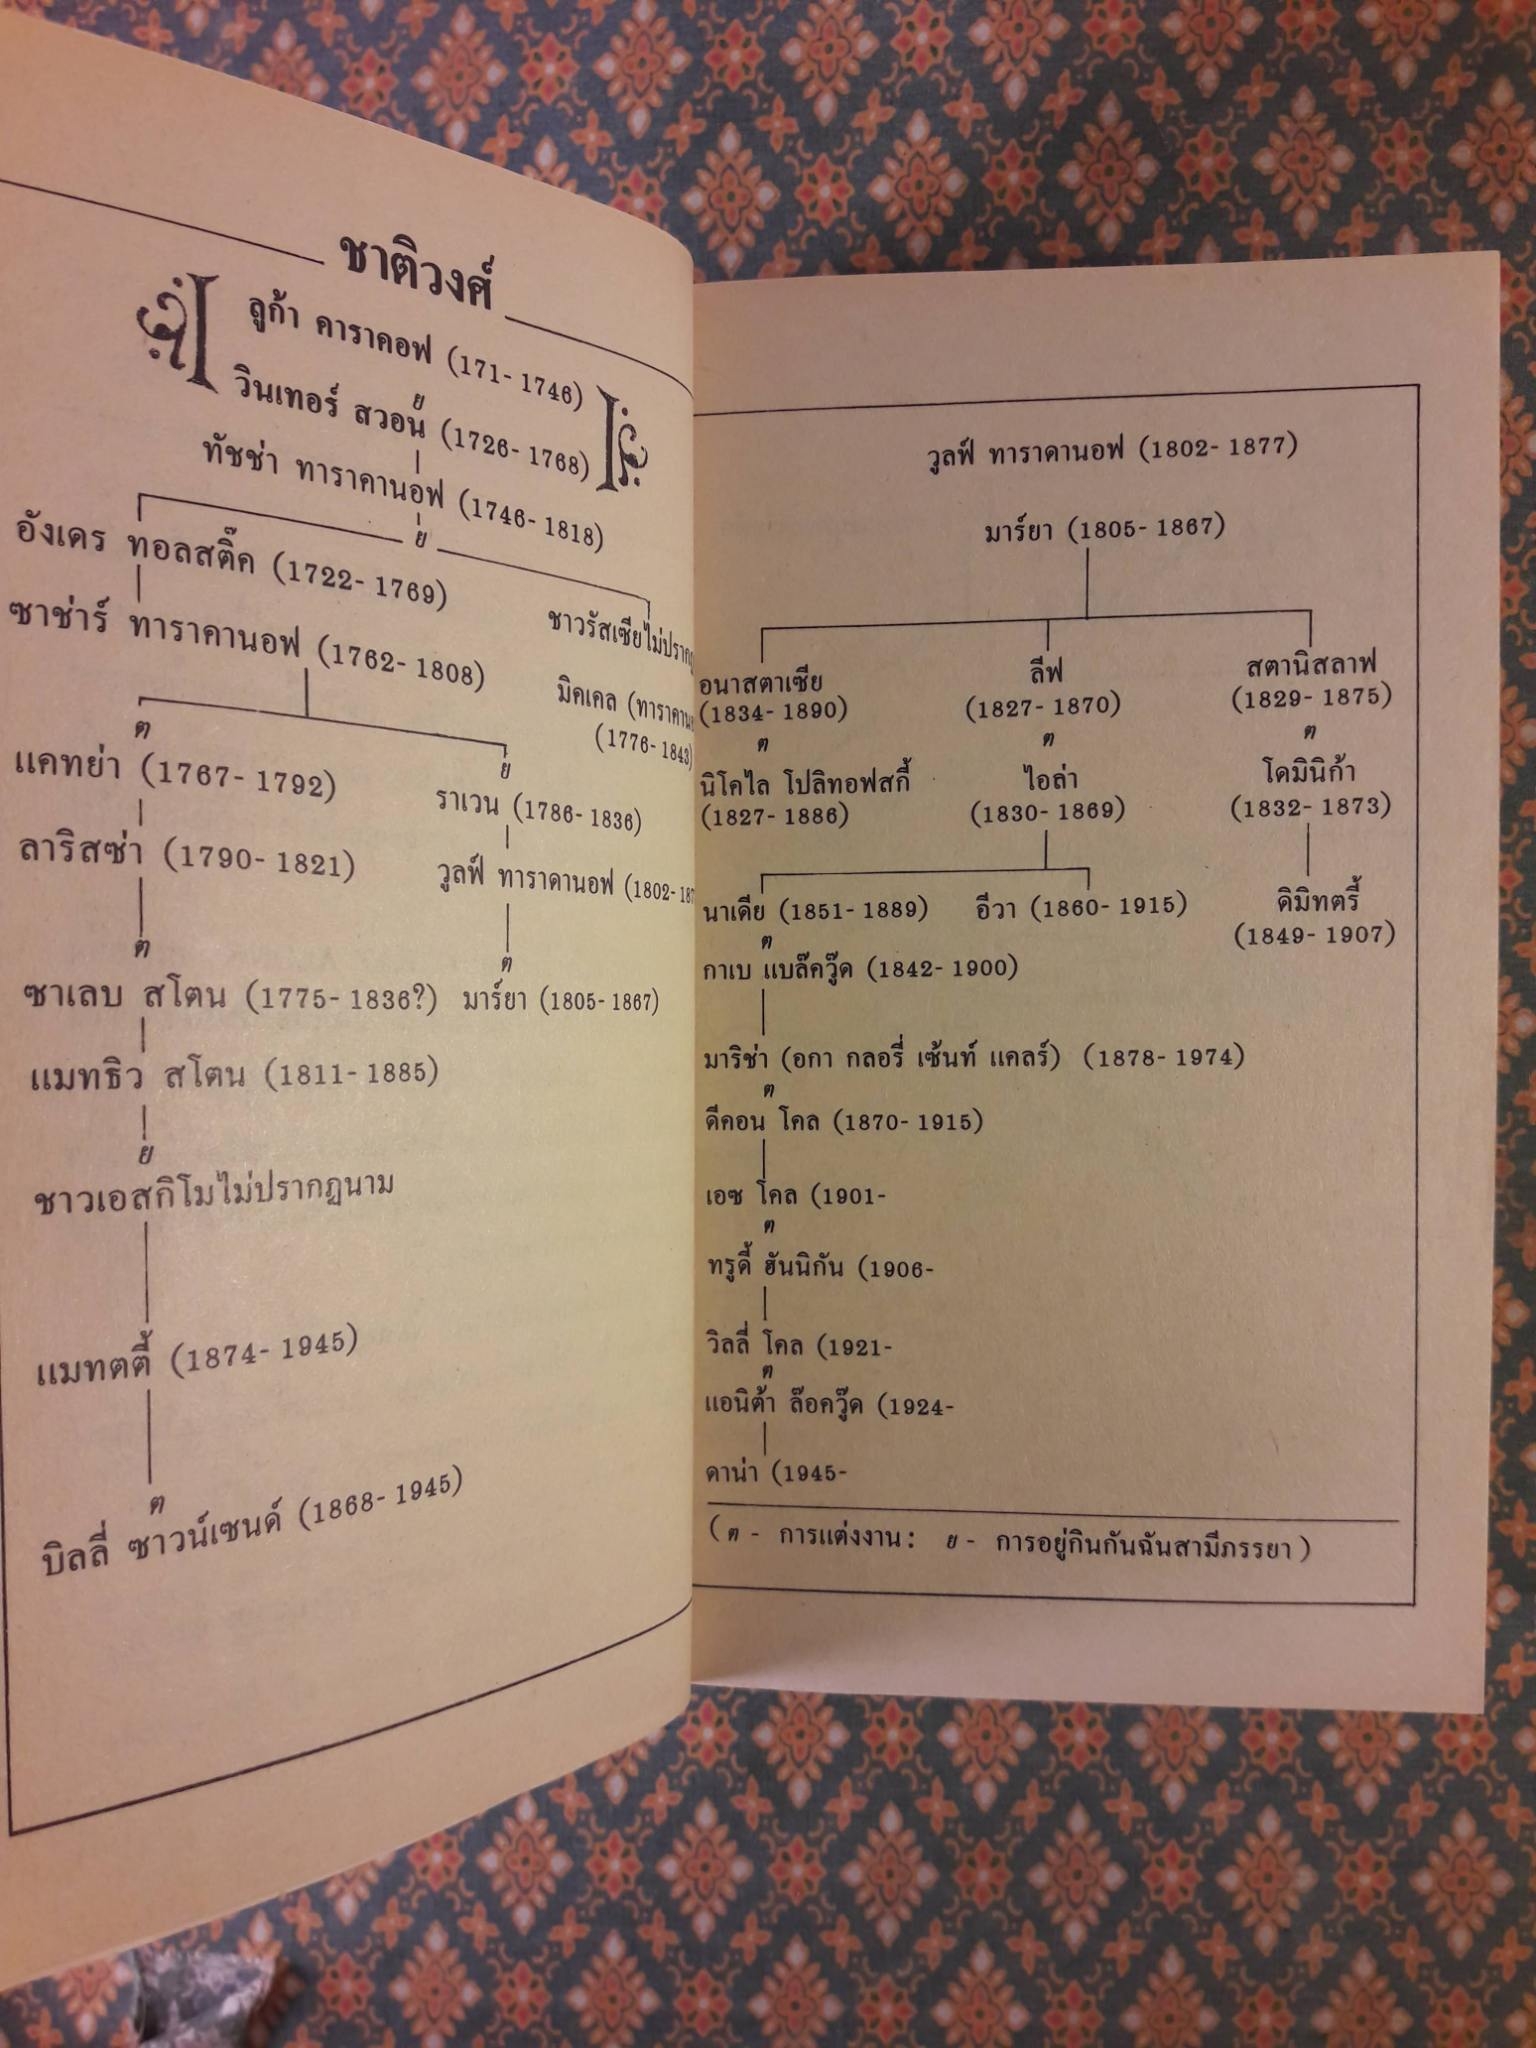 ชาติวงศ์
ลูก้า คาราคอฟ (171-1746)
ย
วินเทอร์ สวอน (1726-1768)
ทัชช่า ทาราคานอฟ (1746-1818)
ย
อังเดร ทอลสติ๊ค (1722-1769)
ซาช่าร์ ทาราคานอฟ (1762-1808)
ชาวรัสเซียไม่ปราก
มิคเคล (ทาราคาน
(1776-1843)
ต
แคทย่า (1767-1792)
ย
ราเวน (1786-1836)
ลาริสซ่า (1790-1821)
วูลฟ์ ทาราคานอฟ (1802-187
ต
ต
ซาเลบ สโตน (1775-1836?)
มาร์ยา (1805-1867)
แมทธิว สโตน (1811-1885)
ย
ชาวเอสกิโมไม่ปรากฏนาม
แมทตตี้ (1874-1945)
ต
บิลลี่ ซาวน์เซนด์ (1868-1945)
วูลฟ์ ทาราคานอฟ (1802-1877)
มาร์ยา (1805-1867)
อนาสตาเซีย
(1834-1890)
ลีฟ
(1827-1870)
สตานิสลาฟ
(1829-1875)
ต
ต
ต
นิโคไล โปลิทอฟสกี้
(1827-1886)
ไอล่า
(1830-1869)
โดมินิก้า
(1832-1873)
นาเดีย (1851-1889)
อีวา (1860-1915)
ดิมิทตรี้
(1849-1907)
ต
กาเบ แบล๊ควู๊ด (1842-1900)
มาริช่า (อกา กลอรี่ เซ้นท์ แคลร์) (1878-1974)
ต
ดีคอน โคล (1870-1915)
เอซ โคล (1901-
ต
ทรูดี้ ฮันนิกัน (1906-
วิลลี่ โคล (1921-
ต
แอนิต้า ล๊อควู๊ด (1924-
ดาน่า (1945-
(ต - การแต่งงาน: ย - การอยู่กินกันฉันสามีภรรยา)